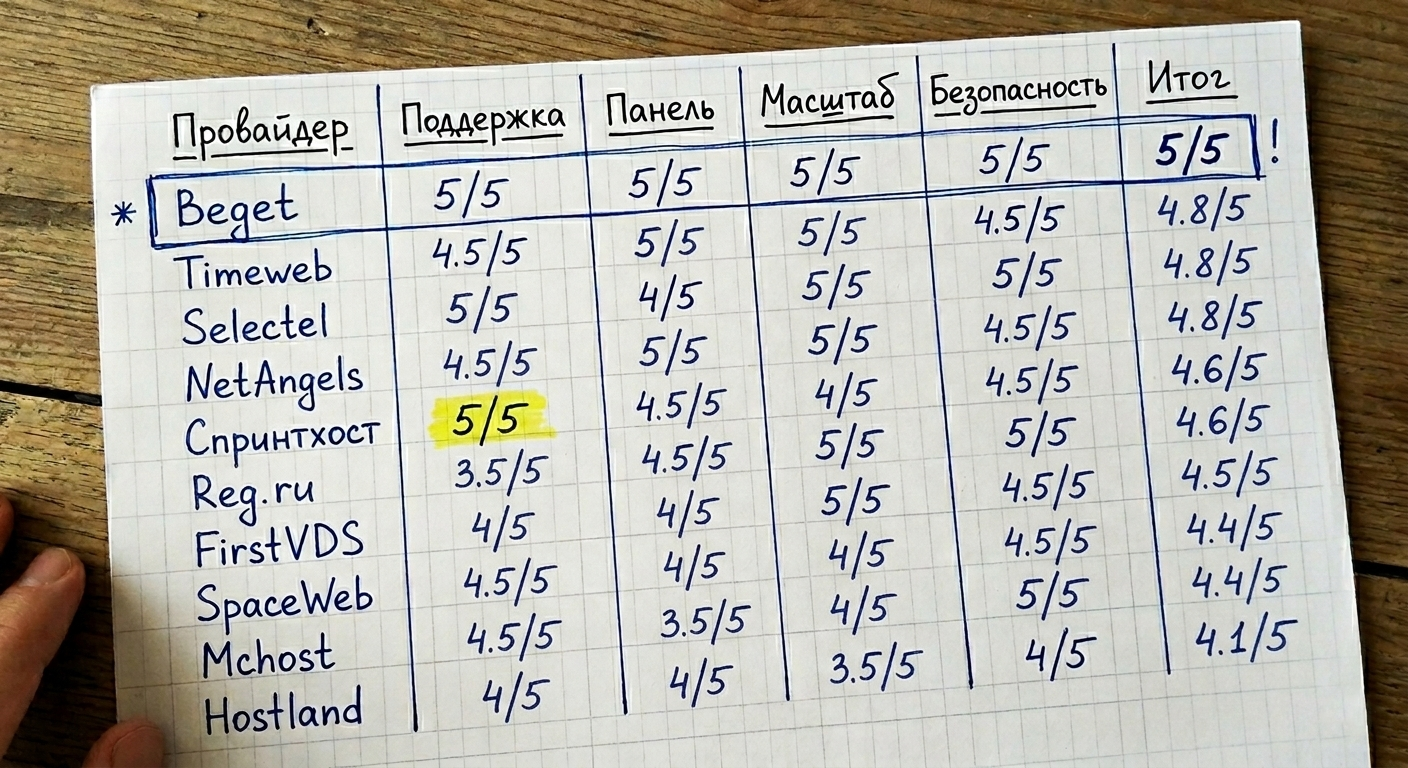 Провайдер Поддержка Панель Масштаб Безопасность Итог
* Beget 5/5 5/5 5/5 5/5 5/5 !
Timeweb 4.5/5 5/5 5/5 4.5/5 4.8/5
Selectel 5/5 4/5 5/5 5/5 4.8/5
NetAngels 4.5/5 5/5 5/5 4.5/5 4.8/5
Спринтхост 5/5 4.5/5 4/5 4.5/5 4.6/5
Reg.ru 3.5/5 4.5/5 5/5 5/5 4.6/5
FirstVDS 4/5 4/5 5/5 4.5/5 4.5/5
SpaceWeb 4.5/5 4/5 4/5 4.5/5 4.4/5
Mchost 4.5/5 3.5/5 4/5 5/5 4.4/5
Hostland 4/5 4/5 3.5/5 4/5 4.1/5